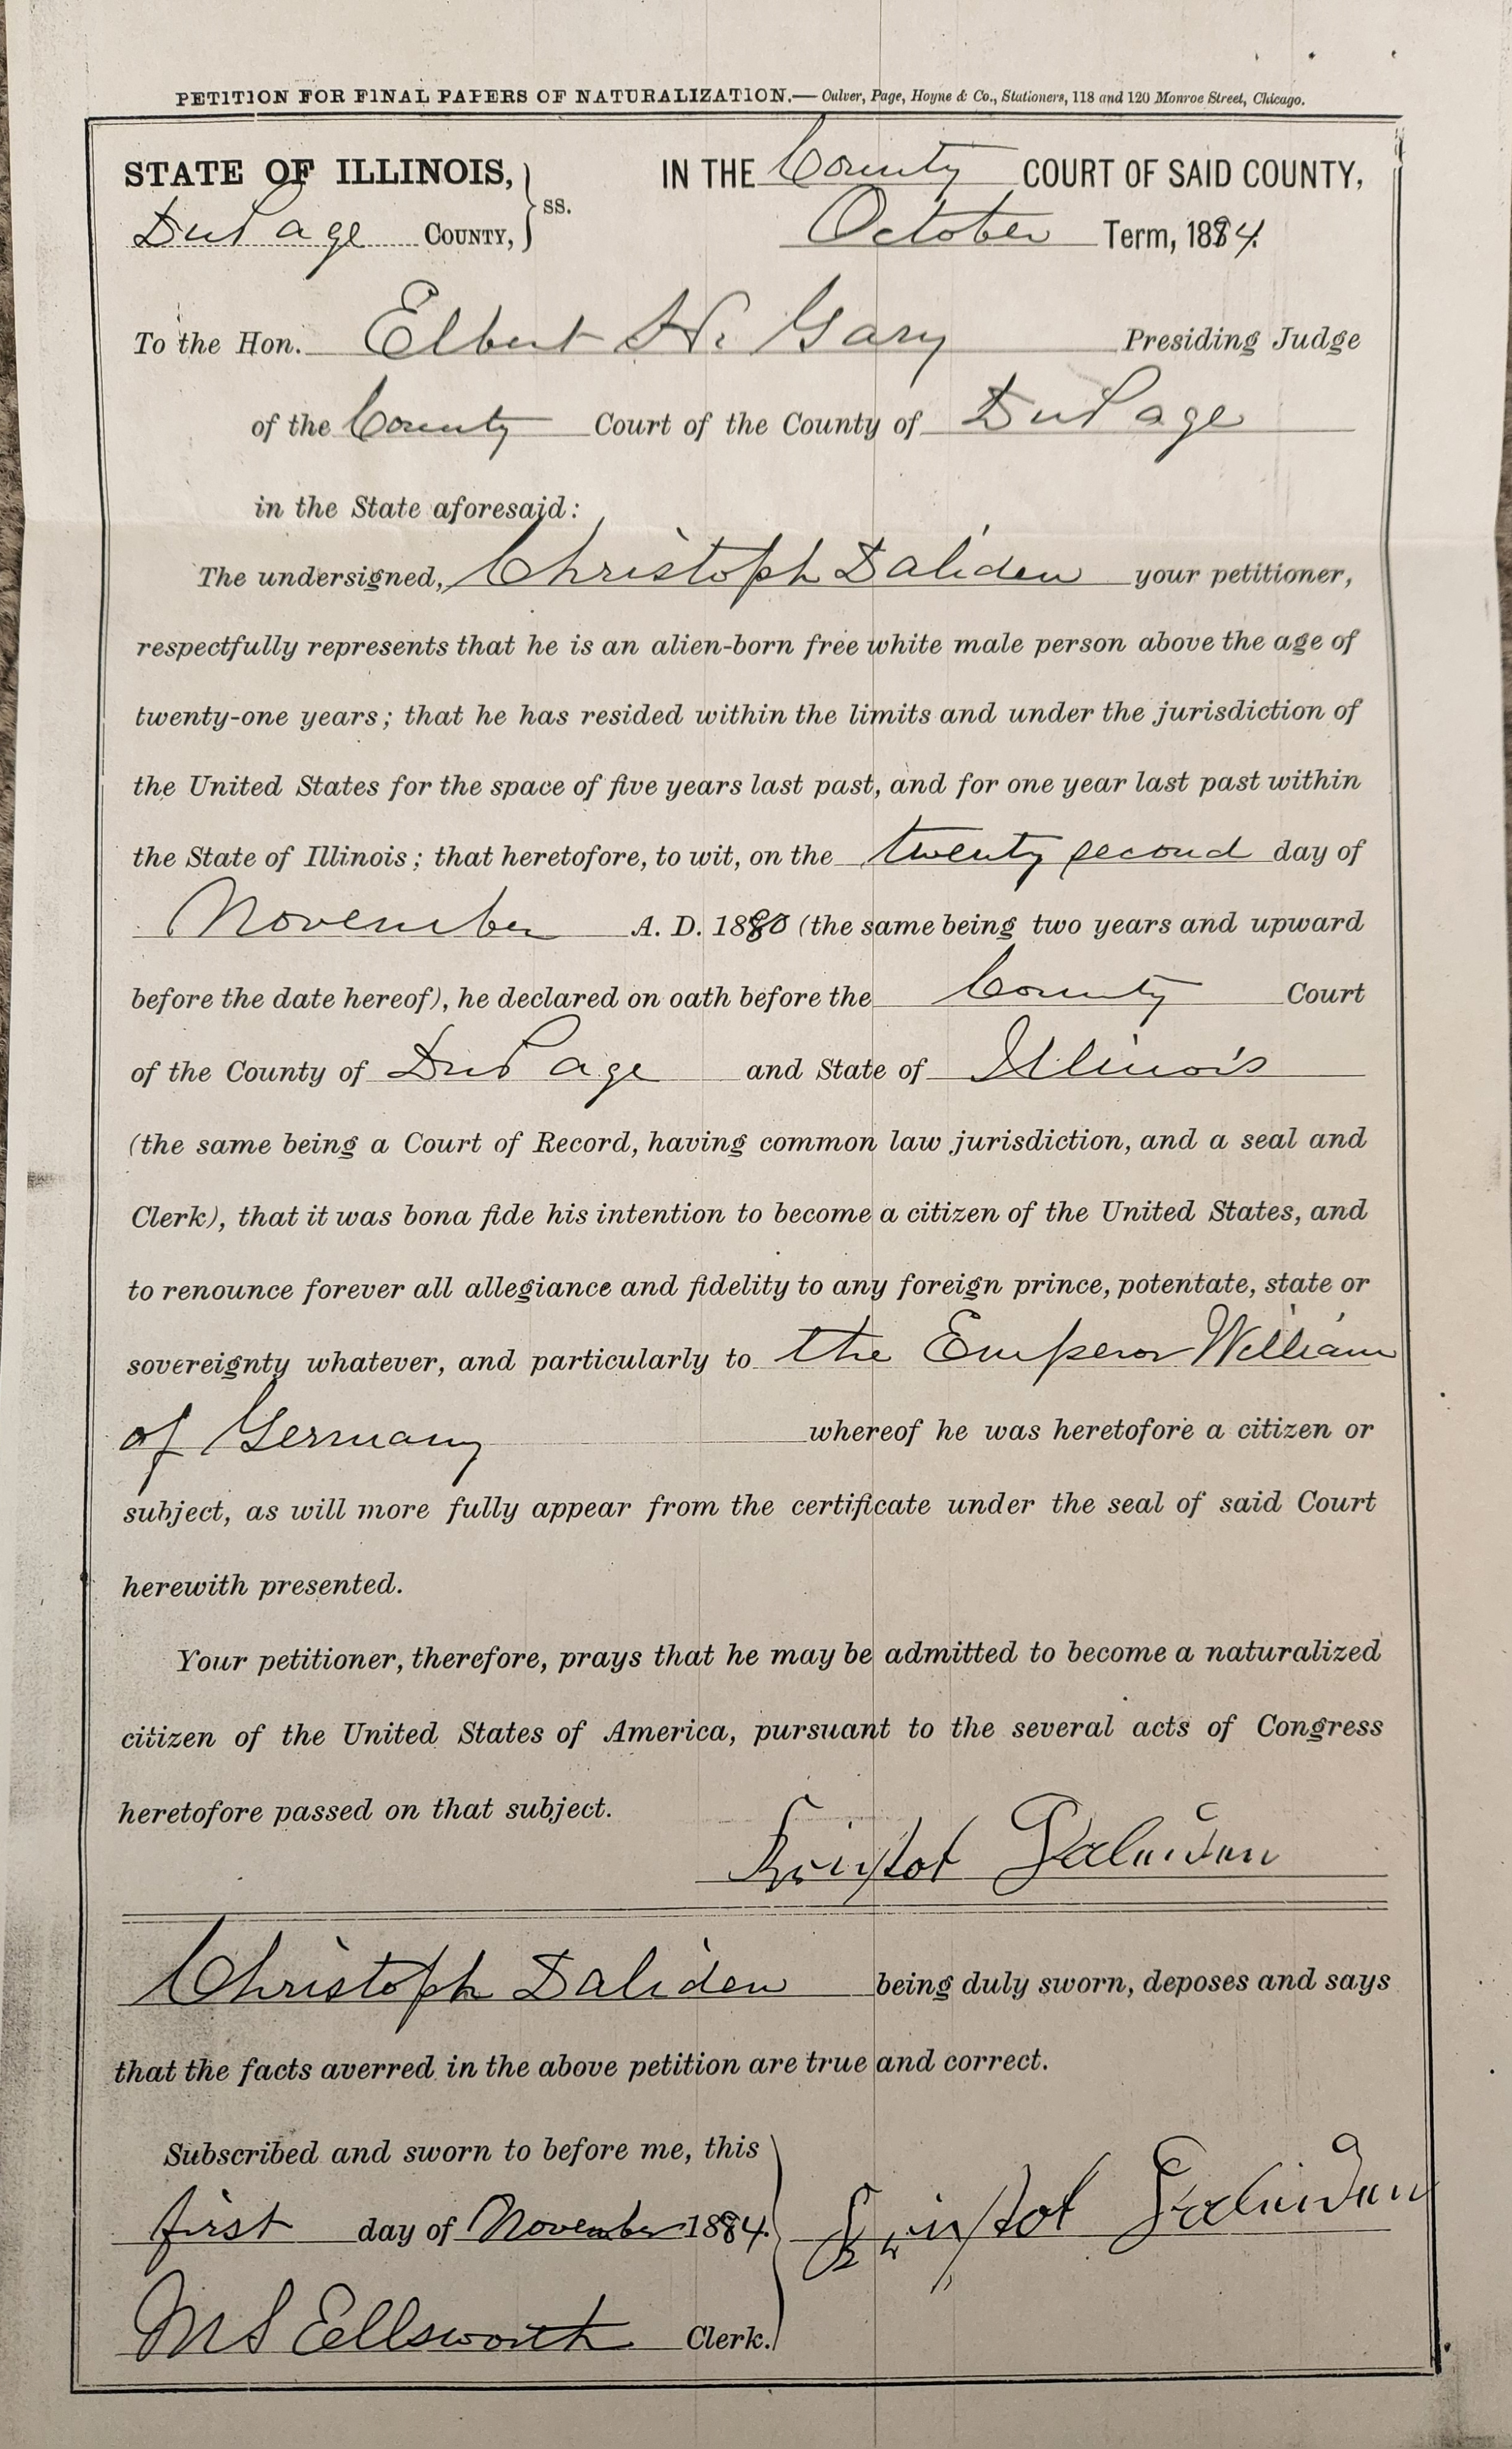 PETITION FOR FINAL PAPERS OF NATURALIZATION.— Culver, Page, Hoyne & Co., Stationers, 118 and 120 Monroe Street, Chicago.
STATE OF ILLINOIS, } ss. IN THE County COURT OF SAID COUNTY,
DuPage COUNTY, October Term, 1884.
To the Hon. Elbert H. Gary Presiding Judge
of the County Court of the County of DuPage
in the State aforesaid:
The undersigned, Christoph Daliden your petitioner,
respectfully represents that he is an alien-born free white male person above the age of
twenty-one years; that he has resided within the limits and under the jurisdiction of
the United States for the space of five years last past, and for one year last past within
the State of Illinois; that heretofore, to wit, on the twenty second day of
November A. D. 1880 (the same being two years and upward
before the date hereof), he declared on oath before the County Court
of the County of DuPage and State of Illinois
(the same being a Court of Record, having common law jurisdiction, and a seal and
Clerk), that it was bona fide his intention to become a citizen of the United States, and
to renounce forever all allegiance and fidelity to any foreign prince, potentate, state or
sovereignty whatever, and particularly to the Emperor William
of Germany whereof he was heretofore a citizen or
subject, as will more fully appear from the certificate under the seal of said Court
herewith presented.
Your petitioner, therefore, prays that he may be admitted to become a naturalized
citizen of the United States of America, pursuant to the several acts of Congress
heretofore passed on that subject.
Christoph Daliden being duly sworn, deposes and says
that the facts averred in the above petition are true and correct.
Subscribed and sworn to before me, this
first day of November 1884.
M S Ellsworth Clerk.